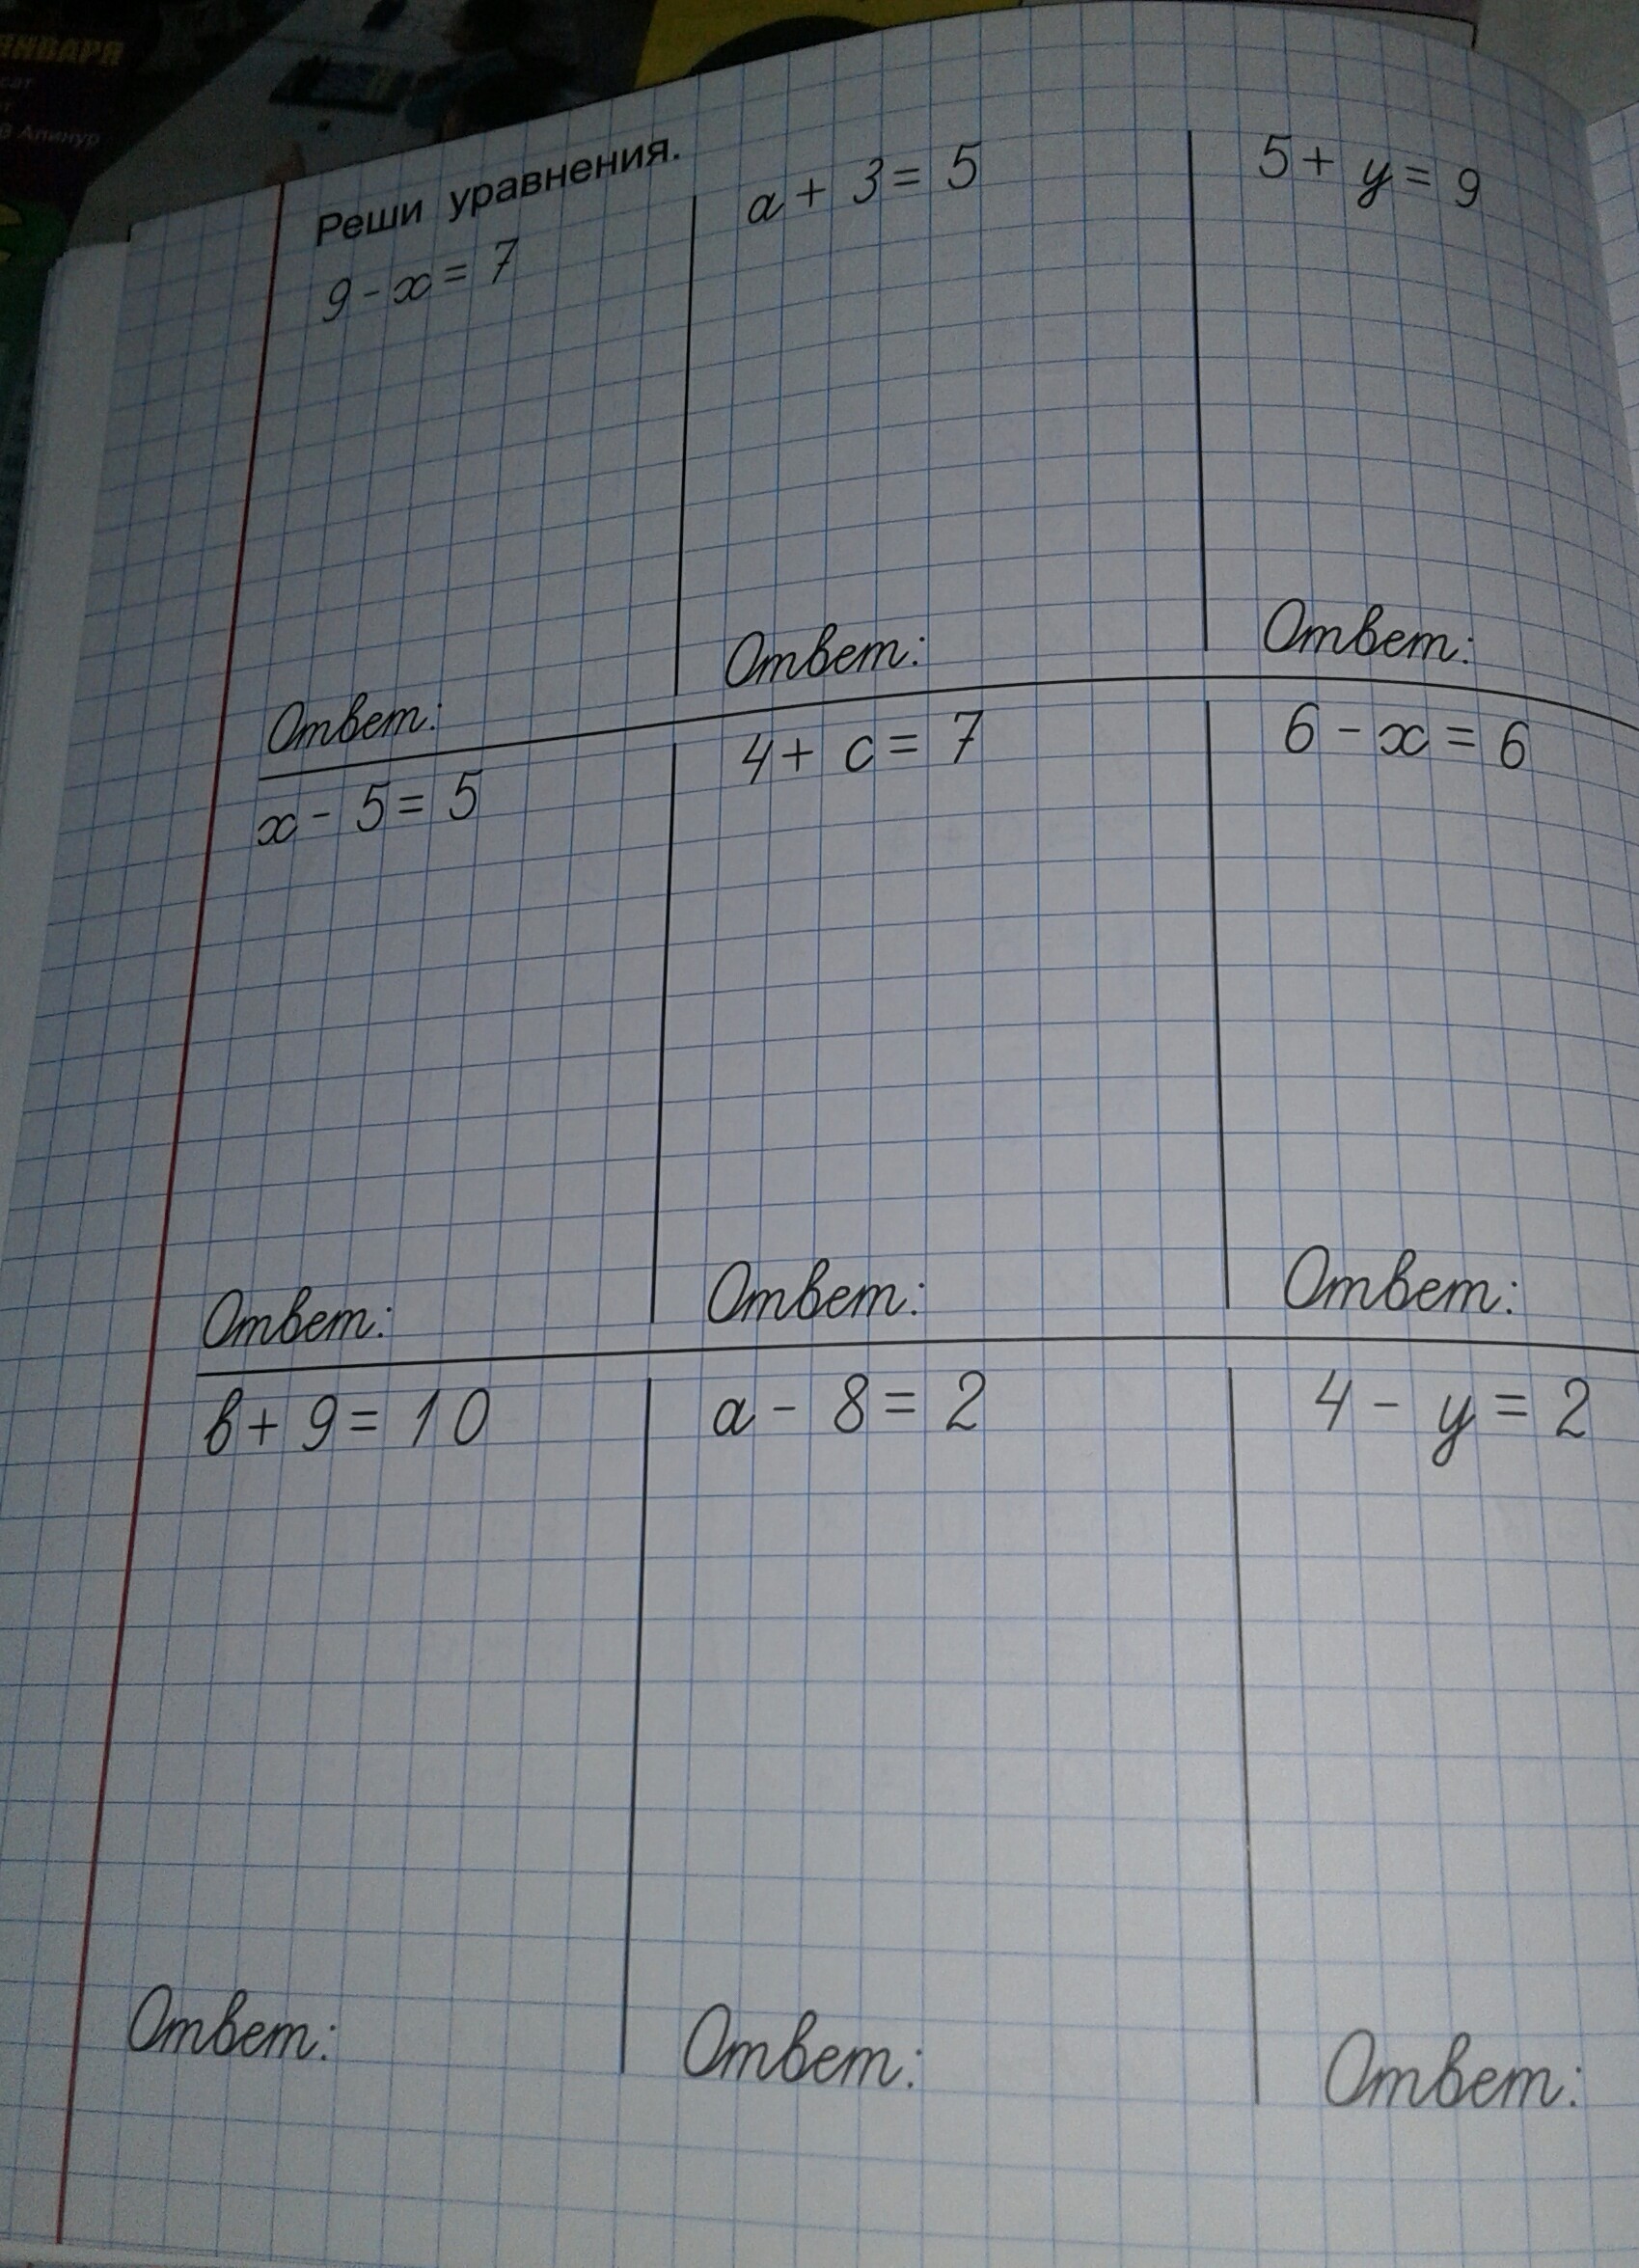 ЯНВАРЯ
Апинур
Реши уравнения.
9 - x = 7
a + 3 = 5
5 + y = 9
Ответ:
Ответ:
Ответ:
x - 5 = 5
4 + c = 7
6 - x = 6
Ответ:
Ответ:
Ответ:
b + 9 = 10
a - 8 = 2
4 - y = 2
Ответ:
Ответ:
Ответ: